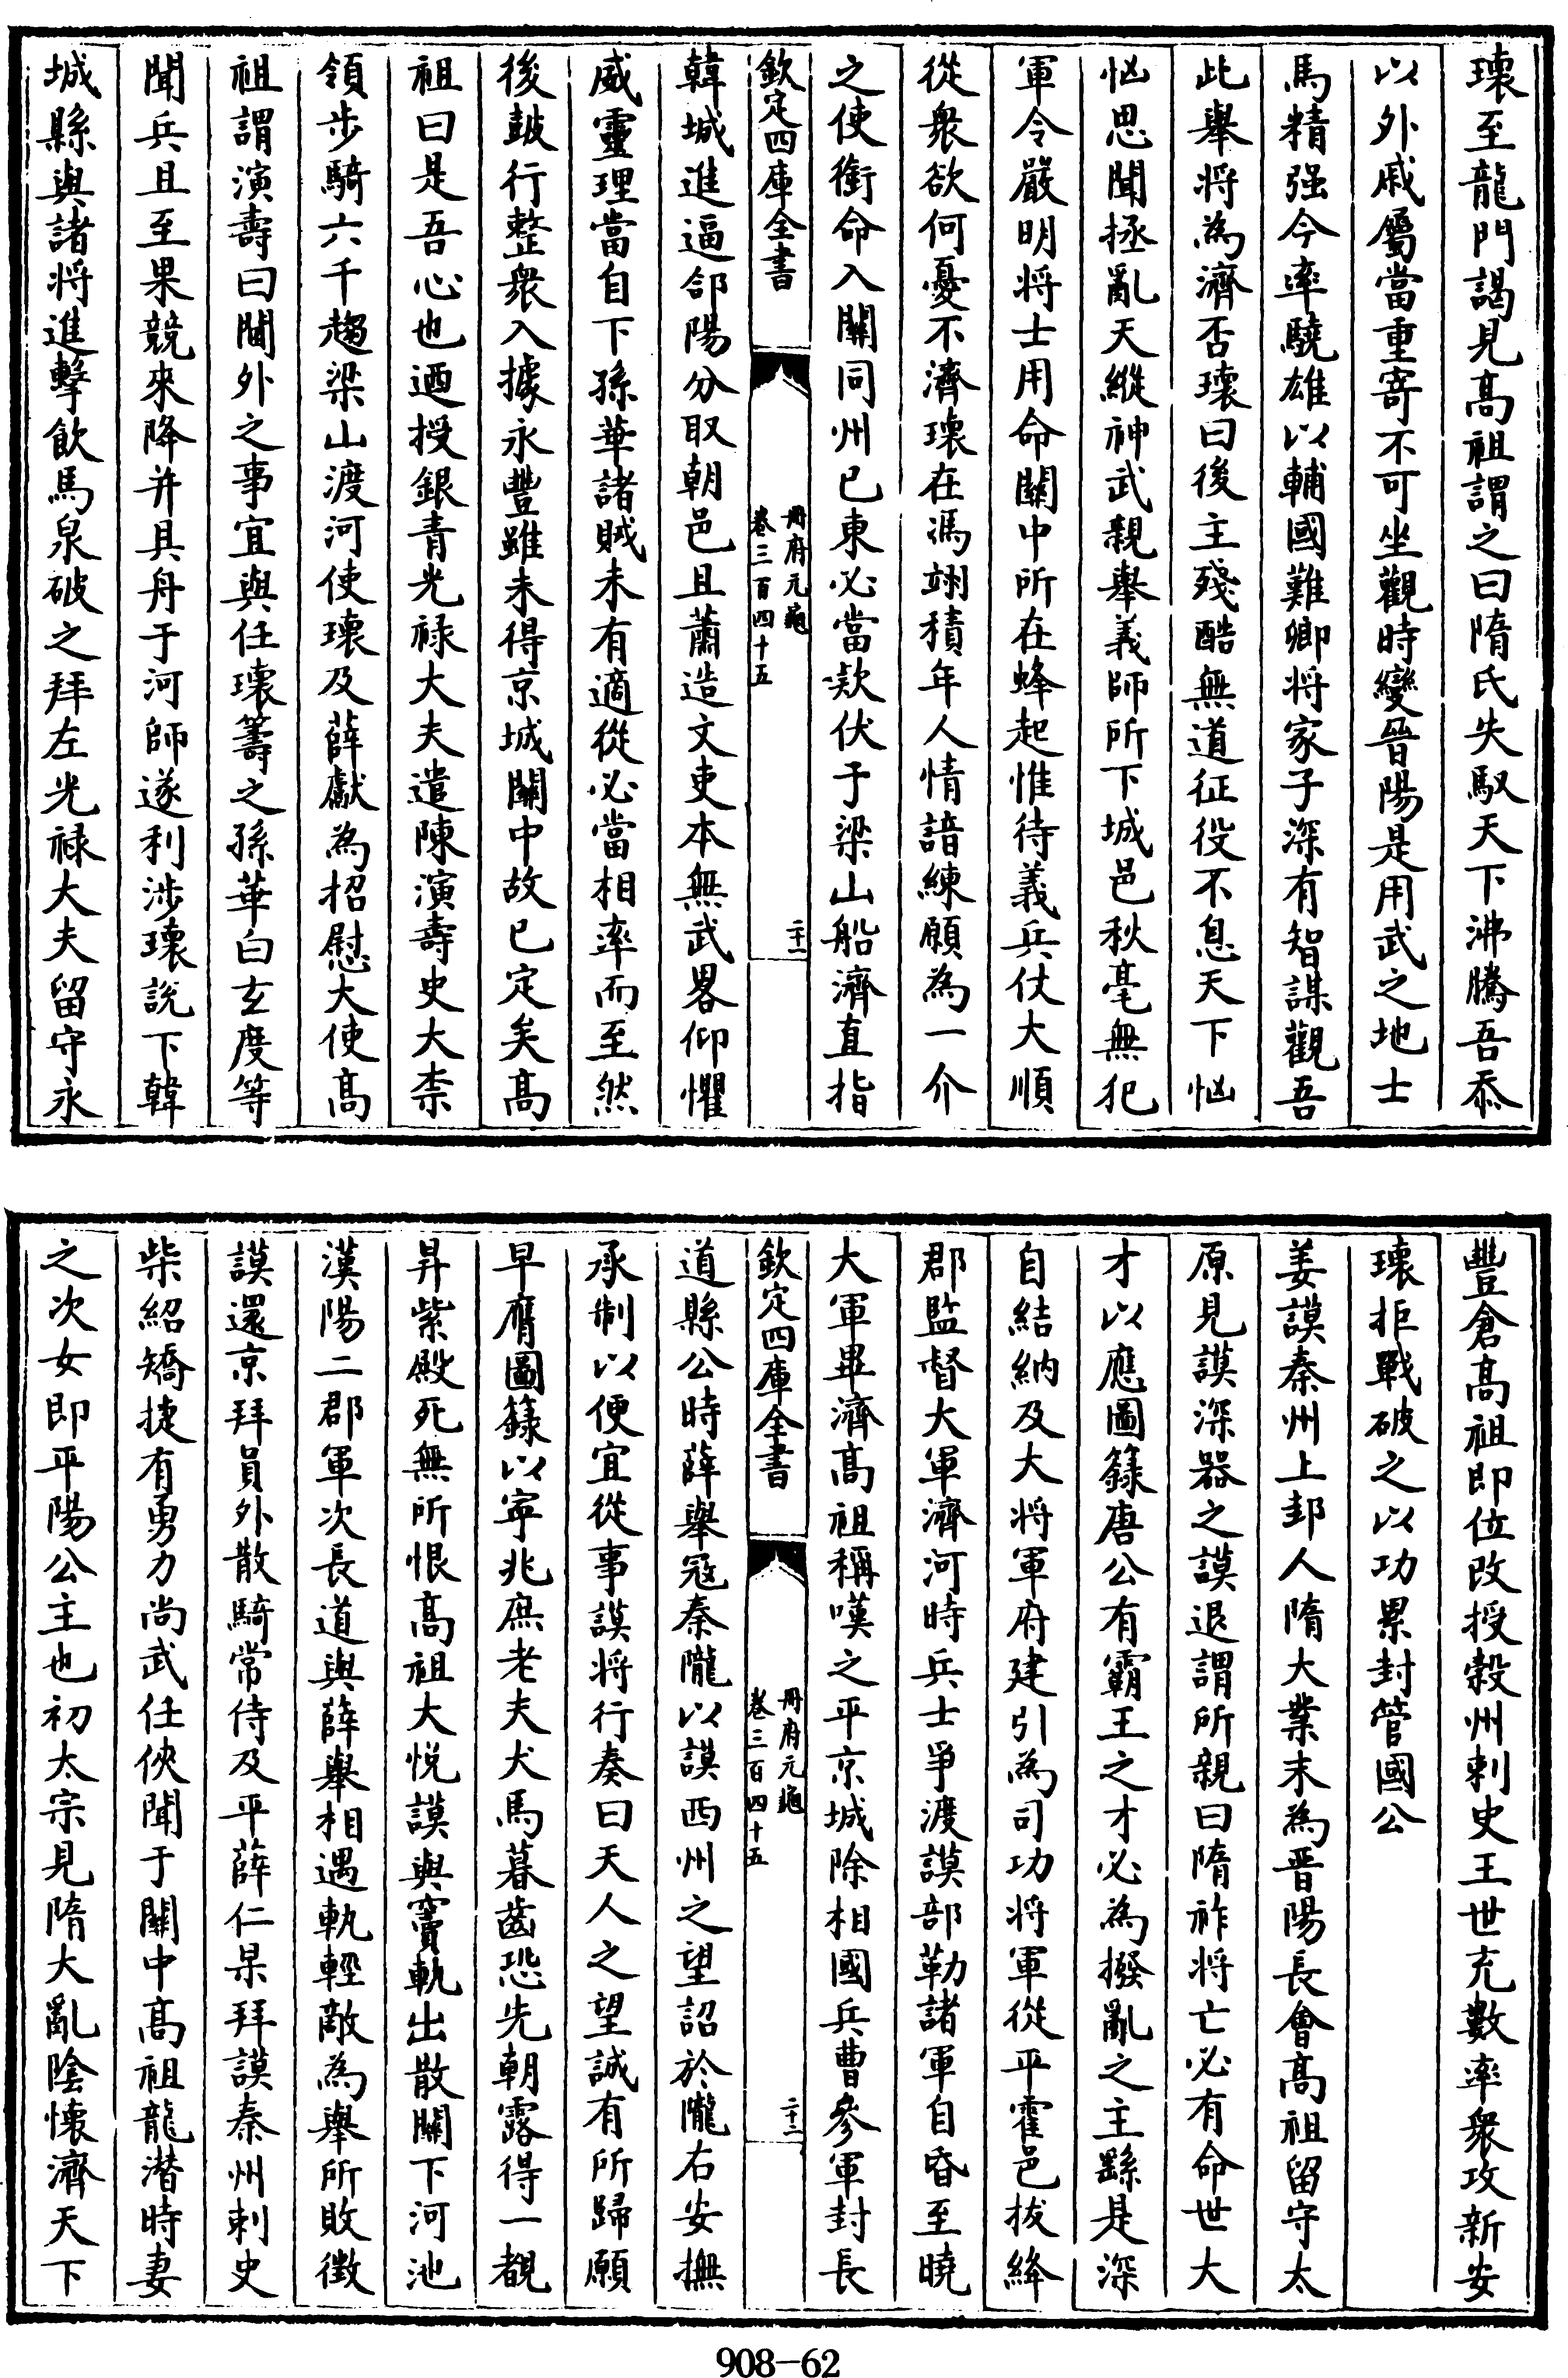 瓌至龍門謁見髙祖謂之曰隋氏失馭天下沸騰吾忝
以外戚屬當重寄不可坐觀時變晉陽是用武之地士
馬精强今率驍雄以輔國難卿将家子深有智謀觀吾
此舉将為濟否瓌曰後主殘酷無道征役不息天下恟
恟思聞拯亂天縱神武親舉義師所下城邑秋毫無犯
軍令嚴明将士用命關中所在蜂起惟待義兵仗大順
從衆欲何憂不濟瓌在馮翊積年人情諳練願為一介
之使銜命入關同州已東必當欵伏于梁山船濟直指
欽定四庫全書
冊府元龜
卷三百四十五
二十一
韓城進逼郃陽分取朝邑且蕭造文吏本無武畧仰懼
威靈理當自下孫華諸賊未有適從必當相率而至然
後鼓行整衆入據永豐雖未得京城關中故已定矣髙
祖曰是吾心也迺授銀青光禄大夫遣陳演壽史大柰
領步騎六千趨梁山渡河使瓌及薛獻為招慰大使髙
祖謂演壽曰閫外之事宜與任瓌籌之孫華白玄度等
聞兵且至果競來降并具舟于河師遂利涉瓌説下韓
城縣與諸将進擊飲馬泉破之拜左光禄大夫留守永
豐倉髙祖即位改授榖州刺史王世充數率衆攻新安
瓌拒戰破之以功累封管國公
姜謨秦州上邽人隋大業末為晋陽長會髙祖留守太
原見謨深器之謨退謂所親曰隋祚将亡必有命世大
才以應圖籙唐公有霸王之才必為撥亂之主繇是深
自結納及大将軍府建引為司功将軍從平霍邑拔絳
郡監督大軍濟河時兵士爭渡謨部勒諸軍自昏至曉
大軍畢濟髙祖稱嘆之平京城除相國兵曹參軍封長
欽定四庫全書
冊府元龜
卷三百四十五
二十二
道縣公時薛舉冦秦隴以謨西州之望詔於隴右安撫
承制以便宜從事謨将行奏曰天人之望誠有所歸願
早膺圖籙以寧兆庶老夫犬馬暮齒恐先朝露得一覩
昇紫殿死無所恨髙祖大悦謨與竇軌出散關下河池
漢陽二郡軍次長道與薛舉相遇軌輕敵為舉所敗徴
謨還京拜員外散騎常侍及平薛仁杲拜謨秦州刺史
柴紹矯捷有勇力尚武任俠聞于關中髙祖龍潛時妻
之次女即平陽公主也初太宗見隋大亂陰懐濟天下
908—62